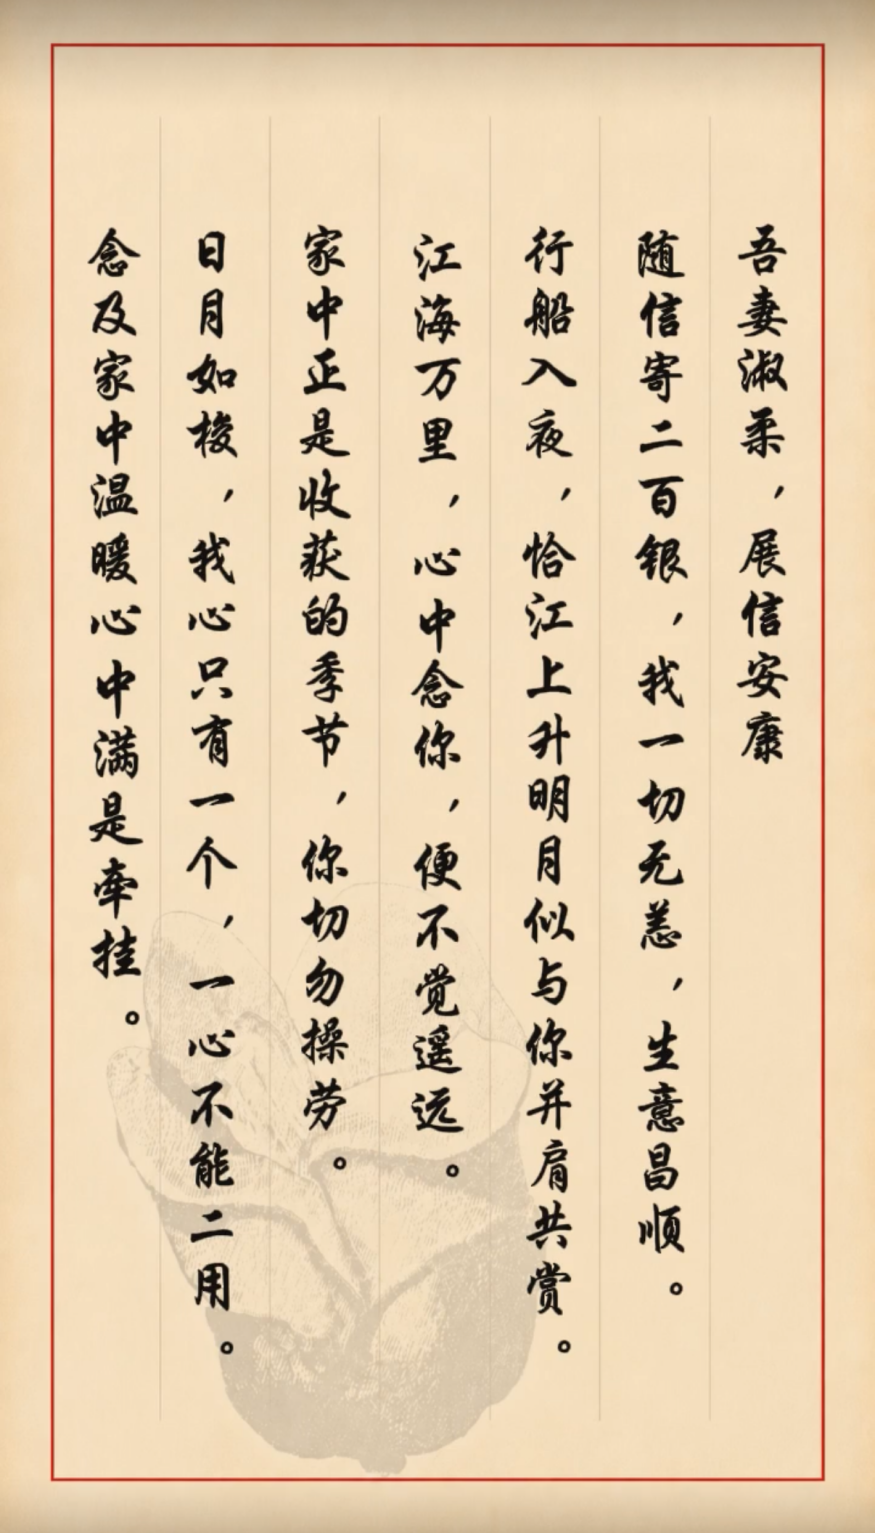 吾妻淑柔，展信安康
随信寄二百银，我一切无恙，生意昌顺。
行船入夜，恰江上升明月似与你并肩共赏。
江海万里，心中念你，便不觉遥远。
家中正是收获的季节，你切勿操劳。
日月如梭，我心只有一个，一心不能二用。
念及家中温暖心中满是牵挂。